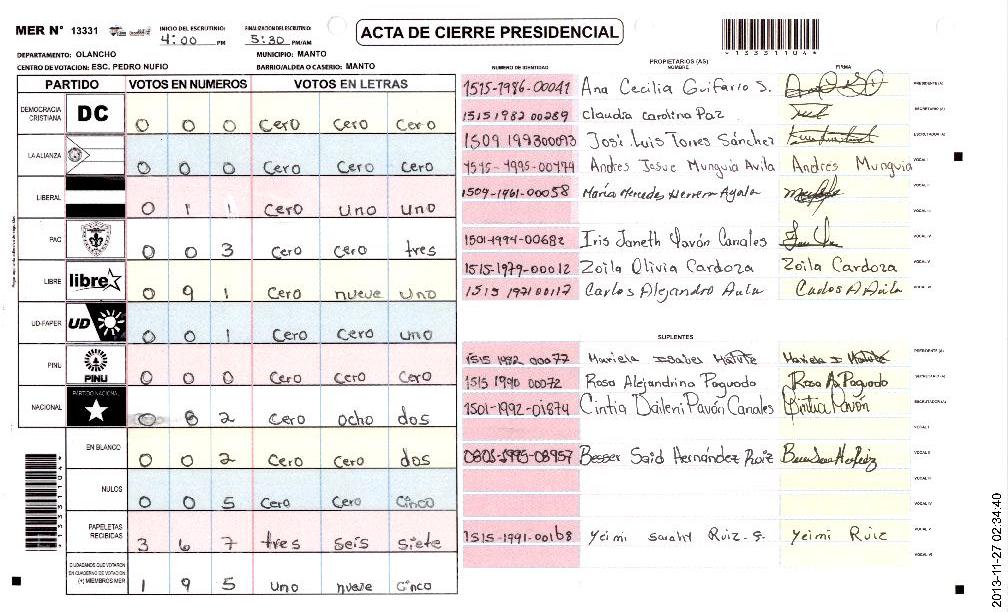 MER N° 13331
INICIO DEL ESCRUTINIO: 4:00 PM
FINALIZACION DEL ESCRUTINIO: 5:30 PM/AM
ACTA DE CIERRE PRESIDENCIAL
*13331104*
DEPARTAMENTO: OLANCHO
MUNICIPIO: MANTO
CENTRO DE VOTACION: ESC. PEDRO NUFIO
BARRIO/ALDEA O CASERIO: MANTO
PARTIDO VOTOS EN NUMEROS VOTOS EN LETRAS
DEMOCRACIA CRISTIANA DC 0 0 0 Cero Cero Cero
LA ALIANZA 0 0 0 Cero Cero Cero
LIBERAL 0 1 1 Cero uno uno
PAC 0 0 3 Cero Cero tres
LIBRE libre 0 9 1 Cero nueve uno
UD-FAPER UD 0 0 1 Cero Cero uno
PINU PINU 0 0 0 Cero Cero Cero
NACIONAL PARTIDO NACIONAL 0 8 2 Cero ocho dos
EN BLANCO 0 0 2 Cero Cero dos
NULOS 0 0 5 Cero Cero Cinco
PAPELETAS RECIBIDAS 3 6 7 tres seis siete
CIUDADANOS QUE VOTARON EN CUADERNO DE VOTACION (+) MIEMBROS MER 1 9 5 uno nueve Cinco
PROPIETARIOS (AS)
NUMERO DE IDENTIDAD NOMBRE FIRMA
1515-1986-00041 Ana Cecilia Guifarro S. PRESIDENTE (A)
1515 1982 00289 Claudia Carolina Paz SECRETARIO (A)
1509 199300093 José Luis Torres Sánchez ESCRUTADOR (A)
1515-1995-00194 Andres Josue Munguia Avila Andres Munguia VOCAL I
1509-1961-00058 María Mercedes Herrera Ayala VOCAL II
VOCAL III
1501-1994-00682 Iris Janeth Pavón Canales VOCAL IV
1515-1979-00012 Zoila Olivia Cardoza Zoila Cardoza VOCAL V
1515 1971 00117 Carlos Alejandro Avila Carlos A Avila VOCAL VI
SUPLENTES
1515 1982 00077 Mariela Isabel Matute Mariela I Matute PRESIDENTE (A)
1515 1990 00072 Rosa Alejandrina Paguado Rosa A Paguado SECRETARIO (A)
1501-1992-01874 Cintia Daileni Pavón Canales Cintia Pavón ESCRUTADOR (A)
VOCAL I
0805-1995-08957 Besser Said Hernández Ruiz VOCAL II
VOCAL III
VOCAL IV
1515-1991-00168 Yeimi Sarahy Ruiz G. Yeimi Ruiz VOCAL V
VOCAL VI
*13331104*
2013-11-27 02:34:40